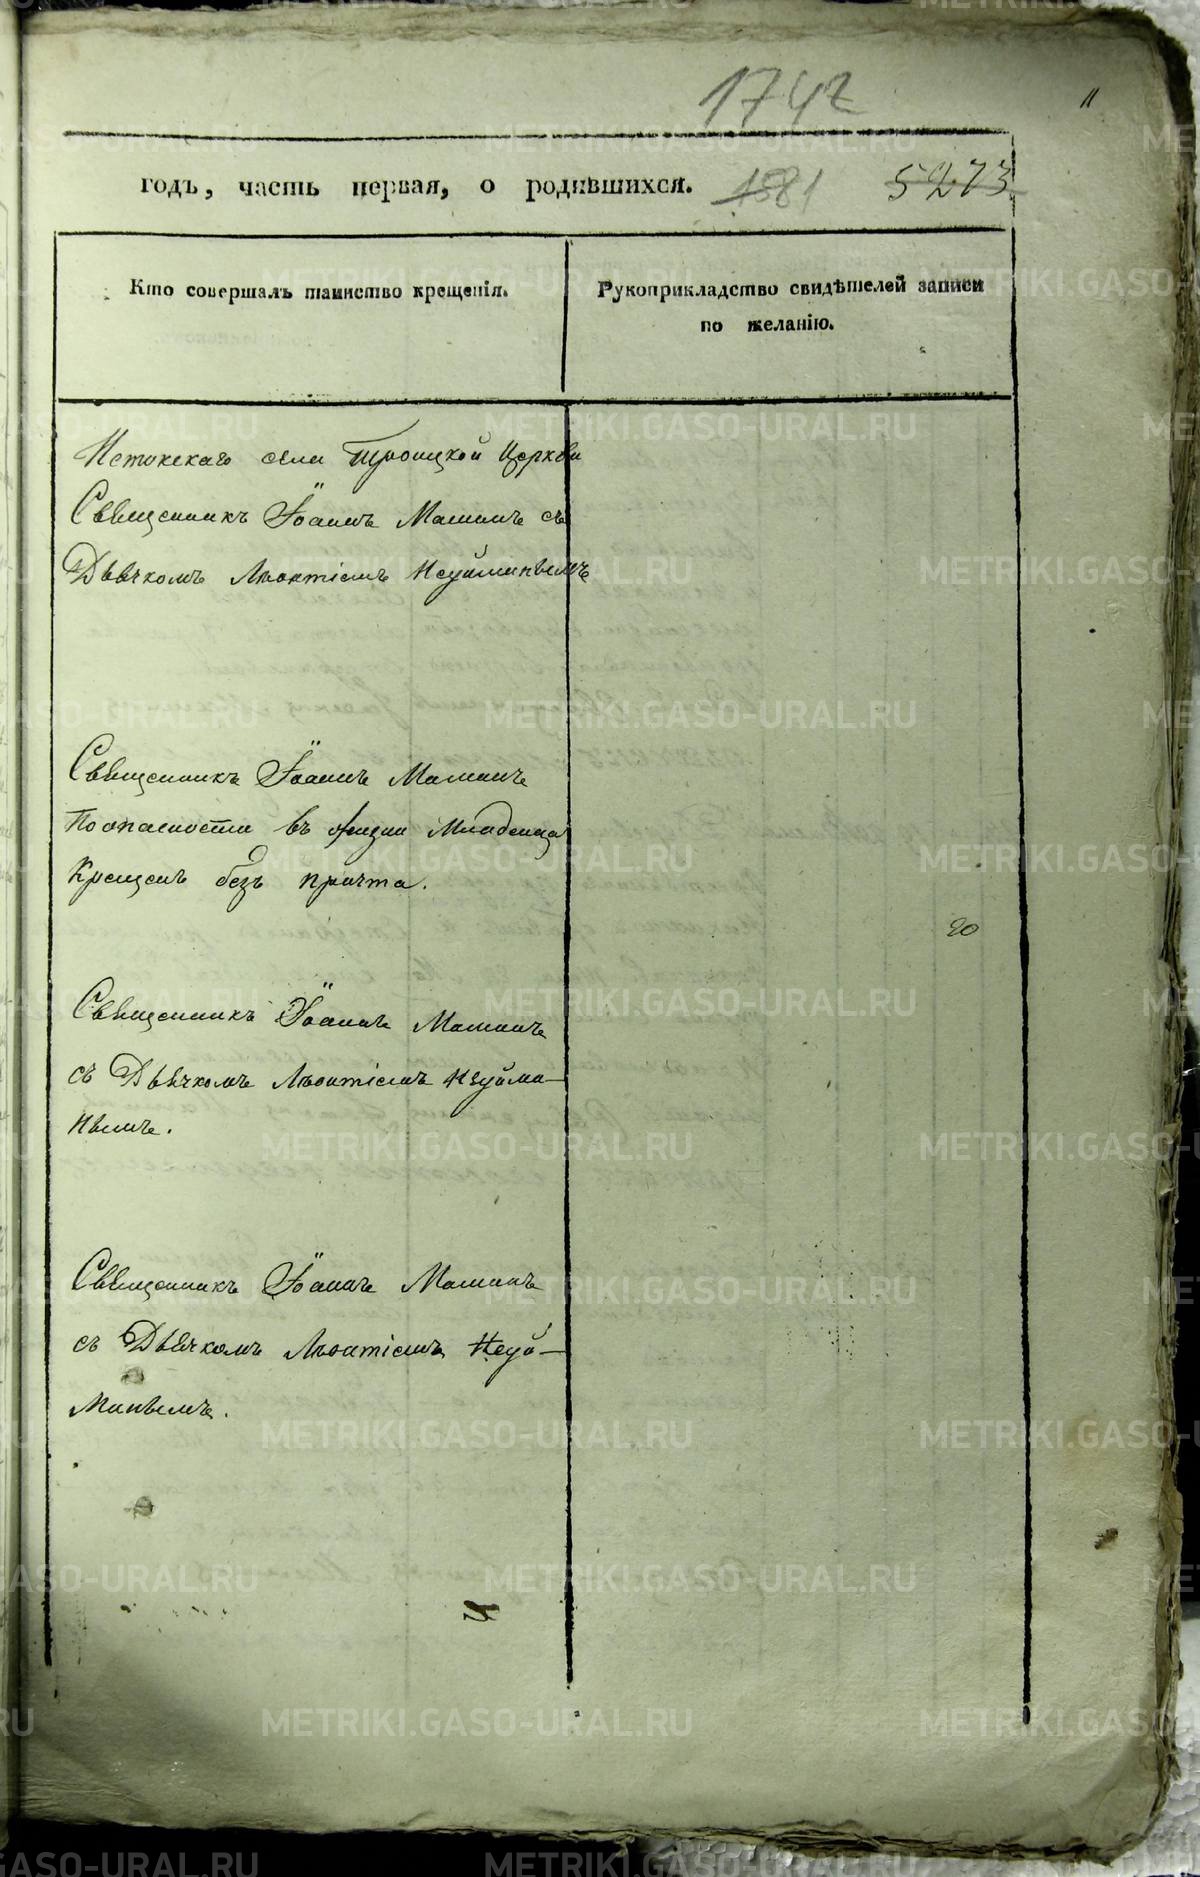 1742
11
годъ, часть первая, о родившихся. 1581 5273
Кто совершалъ таинство крещенія.
Рукоприкладство свидѣтелей записи
по желанію.
Истокскаго села Троицкой Церкви
Священникъ Іоаннъ Маминъ съ
Дьячкомъ Леонтіемъ Неуйминымъ
Священникъ Іоаннъ Маминъ
По опасности въ жизни Младенца
Крещенъ безъ причта.
20
Священникъ Іоаннъ Маминъ
съ Дьячкомъ Леонтіемъ Неуйми-
нымъ.
Священникъ Іоаннъ Маминъ
съ Дьячкомъ Леонтіемъ Неуй-
минымъ.
METRIKI.GASO-URAL.RU